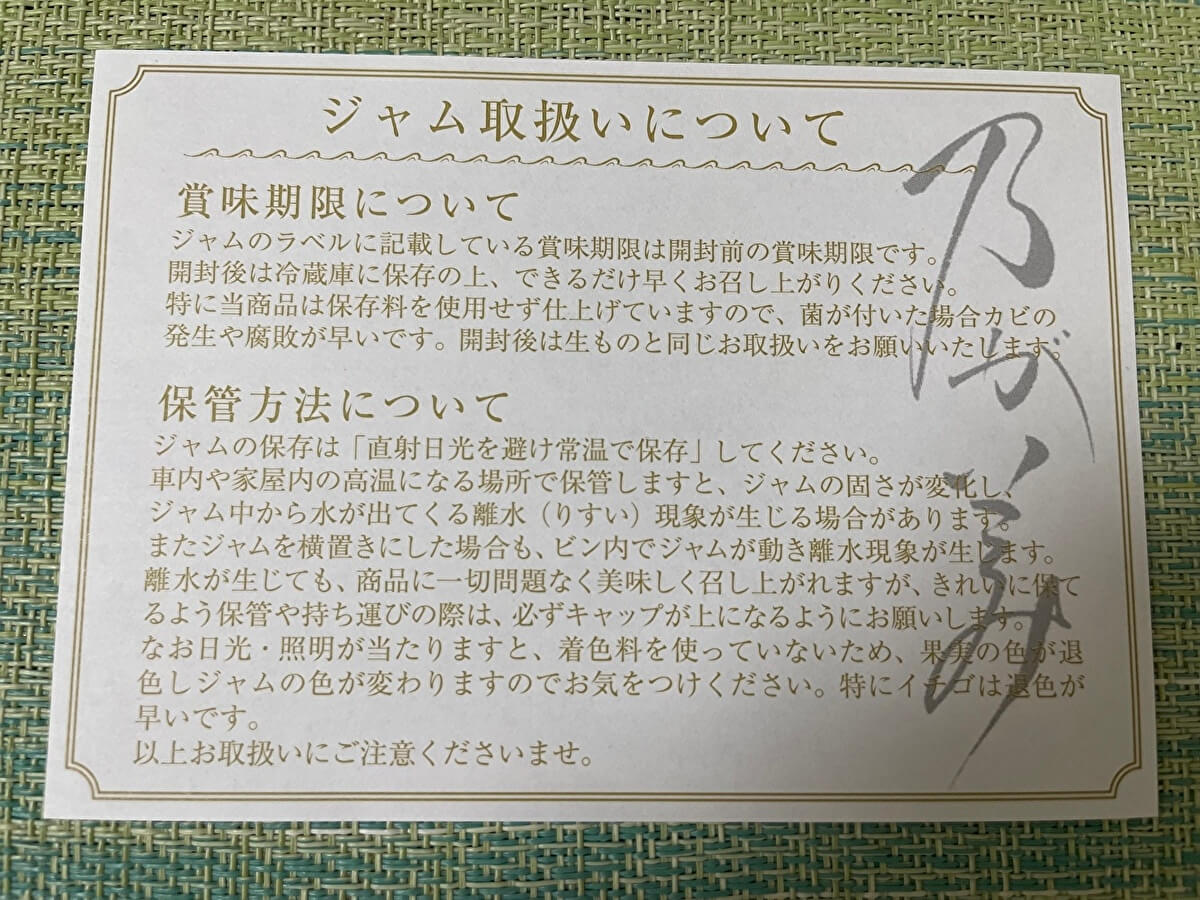 ジャム取扱いについて
賞味期限について
ジャムのラベルに記載している賞味期限は開封前の賞味期限です。
開封後は冷蔵庫に保存の上、できるだけ早くお召し上がりください。
特に当商品は保存料を使用せず仕上げていますので、菌が付いた場合カビの
発生や腐敗が早いです。開封後は生ものと同じお取扱いをお願いいたします。
保管方法について
ジャムの保存は「直射日光を避け常温で保存」してください。
車内や家屋内の高温になる場所で保管しますと、ジャムの固さが変化し、
ジャム中から水が出てくる離水（りすい）現象が生じる場合があります。
またジャムを横置きにした場合も、ビン内でジャムが動き離水現象が生じます。
離水が生じても、商品に一切問題なく美味しく召し上がれますが、きれいに保て
るよう保管や持ち運びの際は、必ずキャップが上になるようにお願いします。
なお日光・照明が当たりますと、着色料を使っていないため、果実の色が退
色しジャムの色が変わりますのでお気をつけください。特にイチゴは退色が
早いです。
以上お取扱いにご注意くださいませ。
乃が美